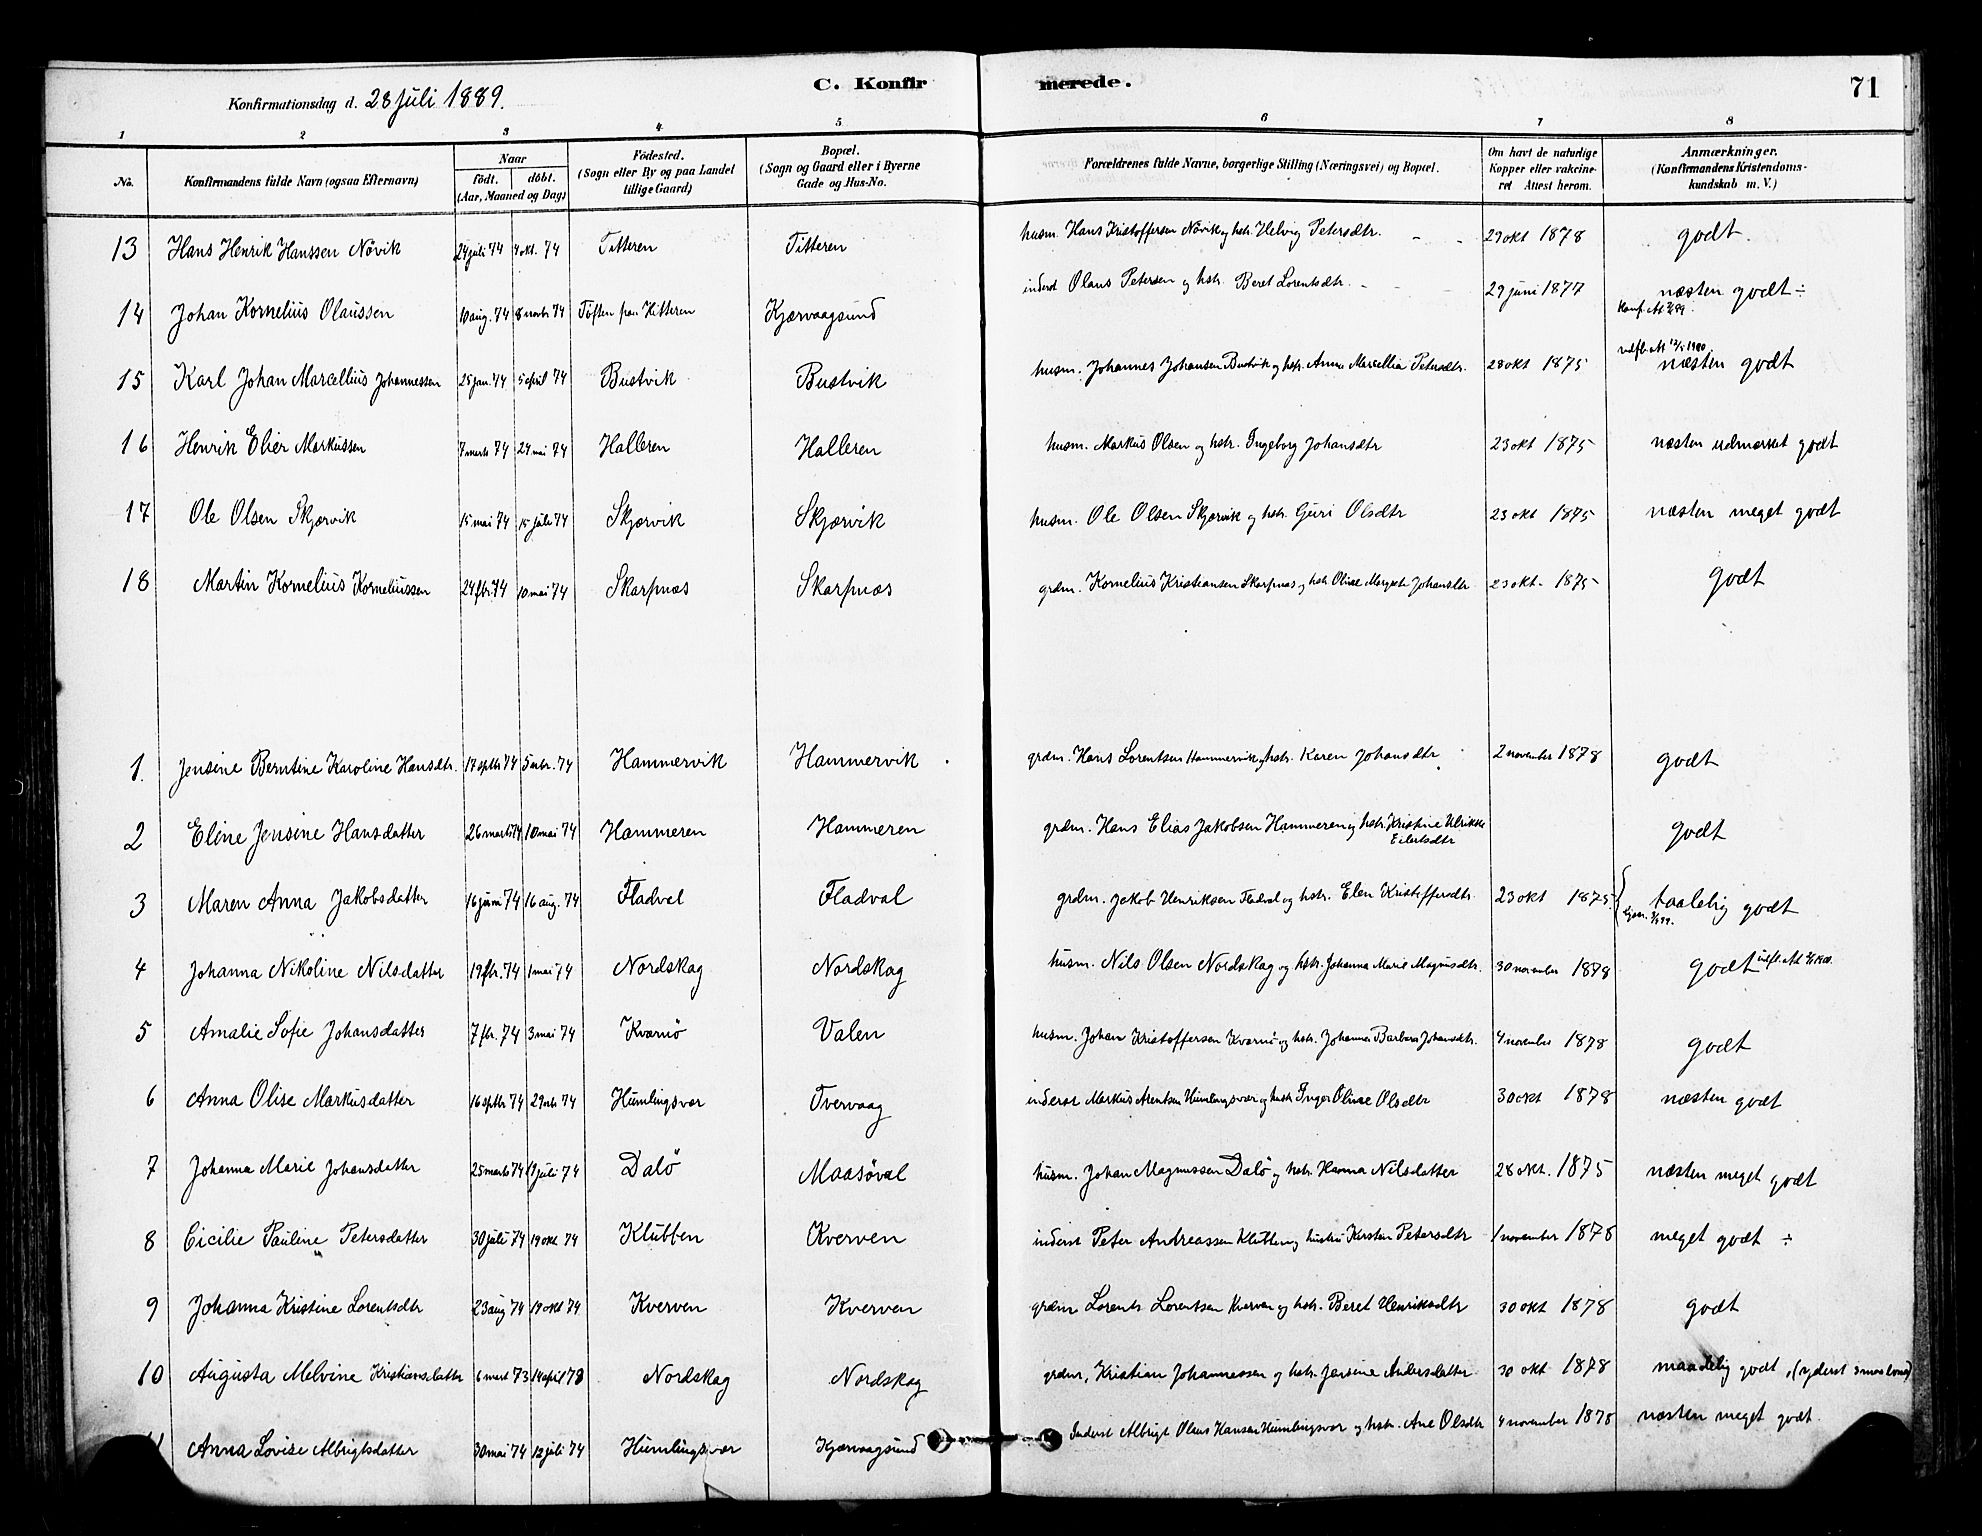 C. Konfirmerede.
71
Konfirmationsdag d. 28 juli 1889.
1 2 3 4 5 6 7 8
No. Konfirmandens fulde Navn (ogsaa Efternavn) Naar födt. döbt. (Aar, Maaned og Dag) Födested. (Sogn eller By og paa Landet tillige Gaard) Bopæl. (Sogn og Gaard eller i Byerne Gade og Hus-No. Forældrenes fulde Navne, borgerlige Stilling (Næringsvei) og Bopæl. Om havt de naturlige Kopper eller vakcineret Attest herom. Anmærkninger. (Konfirmandens Kristendomskundskab m. V.)
13 Hans Henrik Hanssen Növik 24 juli 74 4 okt. 74 Titteren Titteren husm. Hans Kristoffersen Növik og hstr. Helvig Petersdtr. - - 29 okt 1878 godt.
14 Johan Kornelius Olaussen 10 aug. 74 8 novbr 74 Töften paa Hitteren Kjærvaagsund inderst Olaus Petersen og hstr. Beret Lorentsdtr. - - - 29 juni 1877 næsten godt ÷
15 Karl Johan Marcellius Johannessen 25 jan. 74 5 april 74 Bustvik Bustvik husm. Johannes Johansen Bustvik og hstr. Anna Marcellia Petersdtr. 28 okt 1875 næsten godt
16 Henrik Elier Markussen 7 marts 74 24 mai 74 Halleren Halleren husm. Markus Olsen og hstr. Ingeborg Johansdtr 23 okt 1875 næsten udmærket godt
17 Ole Olsen Skjærvik 15 mai 74 15 juli 74 Skjærvik Skjærvik husm. Ole Olsen Skjærvik og hstr. Guri Olsdtr 23 okt 1875 næsten meget godt
18 Martin Kornelius Korneliussen 24 fbr. 74 10 mai 74 Skarpnæs Skarpnæs grdm. Kornelius Kristiansen Skarpnæs og hstr Oline Margrete Johansdtr 23 okt - 1875 godt
1. Jensine Berntine Karoline Hansdtr. 17 sptbr 74 5 nvbr. 74 Hammervik Hammervik grdm. Hans Lorentsen Hammervik og hstr. Karen Johansdtr 2 november 1878 godt
2 Eline Jensine Hansdatter 26 marts 74 10 mai 74 Hammeren Hammeren grdm. Hans Elias Jakobsen Hammeren og hstr. Kristine Ulrikke Eilertsdtr godt
3 Maren Anna Jakobsdatter 16 juni 74 16 aug. 74 Fladval Fladval grdm. Jakob Henriksen Fladval og hstr. Elen Kristoffersdtr. 23 okt 1875 taalelig godt
4 Johanna Nikoline Nilsdatter 19 fbr. 74 1 mai 74 Nordskag Nordskag husm. Nils Olsen Nordskag og hstr. Johanna Marie Magnusdtr. 30 november 1878 godt
5 Amalie Sofie Johansdatter 7 fbr. 74 3 mai 74 Kvarnö Valen husm. Johan Kristoffersen Kvarnö og hstr. Johanna Barbara Johansdtr. 4 november 1878 godt
6 Anna Olise Markusdatter 16 sptbr 74 29 nvbr 74 Humlingsvær Tvervaag inderst Markus Arentsen Humlingsvær og hstr Inger Oline Olsdtr 30 okt 1878 næsten godt
7 Johanna Marie Johansdatter 25 marts 74 19 juli 74 Dalö Maasöval husm. Johan Magnussen Dalö og hstr. Hanna Nilsdatter 28 okt. 1875 næsten meget godt
8 Cicilie Pauline Petersdatter 30 juli 74 19 okt 74 Klubben Kverven inderst Peter Andreassen Klubben og hustru Kirsten Petersdtr 1 november 1878 meget godt ÷
9 Johanna Kristine Lorentsdtr 23 aug 74 19 okt 74 Kverven Kverven grdm Lorents Lorentsen Kverven og hstr. Beret Henriksdtr 30 okt 1878 godt
10 Augusta Melvine Kristiansdatter 6 mart 73 14 april 78 Nordskag Nordskag grdm. Kristian Johannessen og hstr. Jensine Andersdatter 30 okt 1878 maadelig godt
11 Anna Lovise Albrigtsdatter 30 mai 74 12 juli 74 Humlingsvær Kjærvaagsund Inderst Albrigt Olaus Hansen Humlingsvær og hstr. Ane Olsdtr 4 november 1878 næsten meget godt.